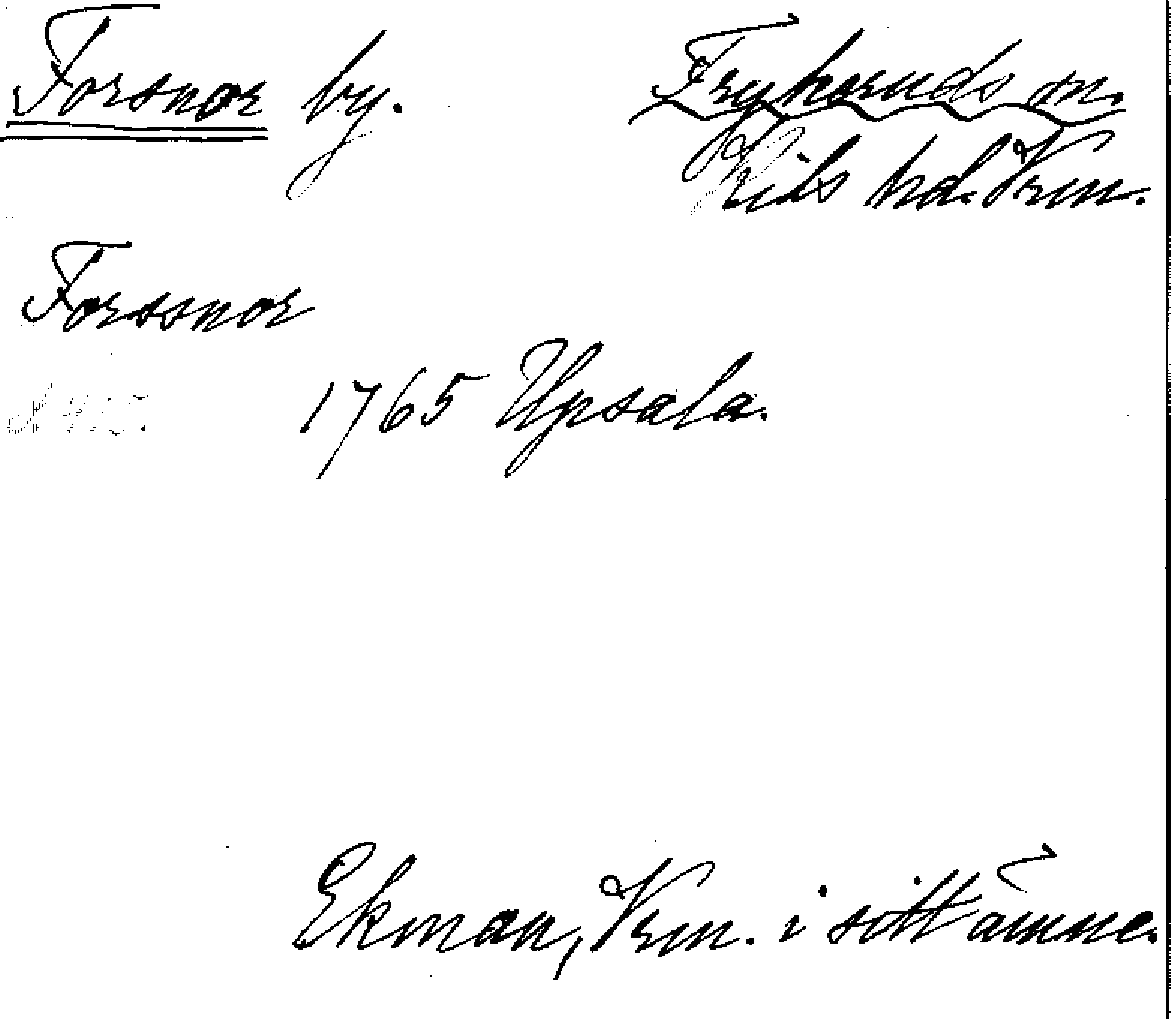 Forsnor by.
Frykeruds sn.
Kils hd. Vrm.
Forssnor
1765 Upsala.
Ekman, Vrm. i sitt ämne.